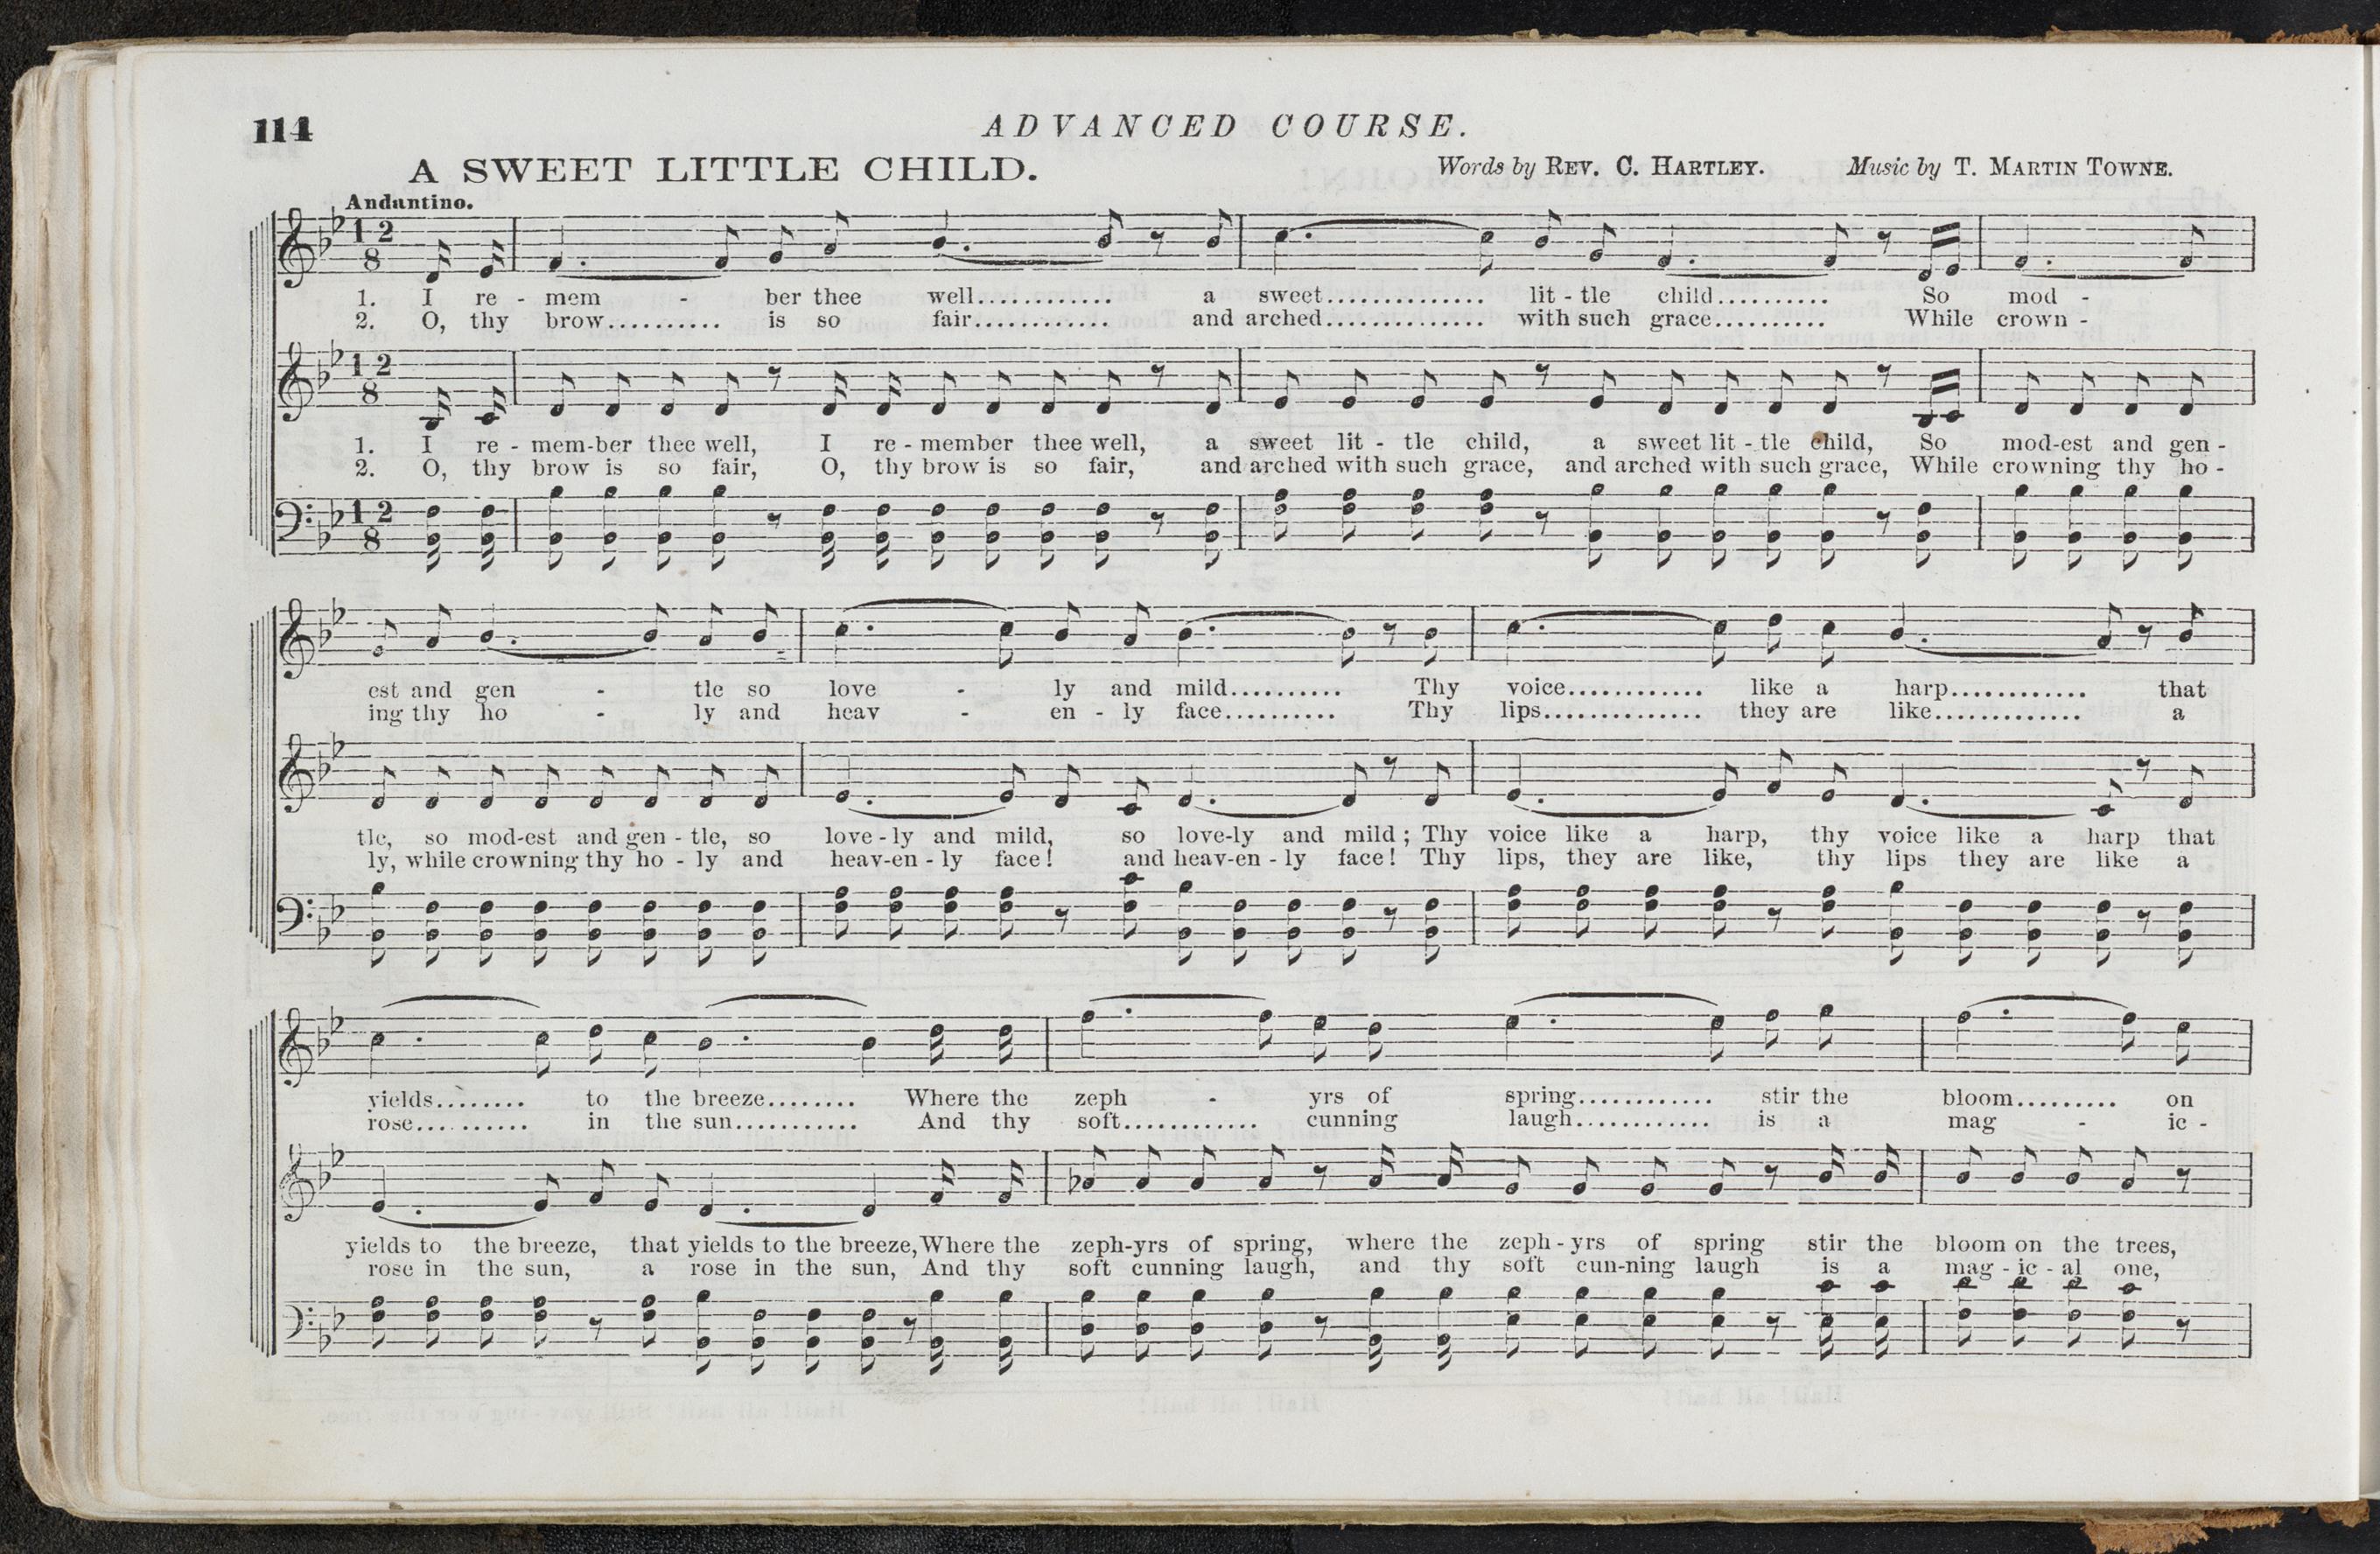 114
ADVANCED COURSE.
A SWEET LITTLE CHILD.
Words by REV. C. HARTLEY. Music by T. MARTIN TOWNE.
Andantino.
12
8
1. I re - mem - ber thee well............. a sweet............... lit - tle child.......... So mod -
2. O, thy brow.......... is so fair............ and arched............... with such grace.......... While crown -
12
8
1. I re - mem-ber thee well, I re - member thee well, a sweet lit - tle child, a sweet lit - tle child, So mod-est and gen -
2. O, thy brow is so fair, O, thy brow is so fair, and arched with such grace, and arched with such grace, While crowning thy ho -
12
8
est and gen - tle so love - ly and mild.......... Thy voice............ like a harp............ that
ing thy ho - ly and heav - en - ly face.......... Thy lips.............. they are like............. a
tle, so mod-est and gen - tle, so love - ly and mild, so love-ly and mild ; Thy voice like a harp, thy voice like a harp that
ly, while crowning thy ho - ly and heav-en - ly face ! and heav-en - ly face ! Thy lips, they are like, thy lips they are like a
yields........ to the breeze........ Where the zeph - yrs of spring............ stir the bloom......... on
rose.......... in the sun........... And thy soft............ cunning laugh............ is a mag - ic -
yields to the breeze, that yields to the breeze, Where the zeph-yrs of spring, where the zeph - yrs of spring stir the bloom on the trees,
rose in the sun, a rose in the sun, And thy soft cunning laugh, and thy soft cun-ning laugh is a mag - ic - al one,